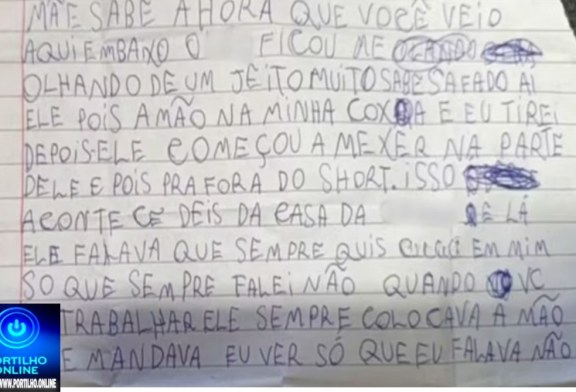 MÃE SABE A HORA QUE VOCÊ VEIO
AQUI EMBAXO O FICOU ME
OLHANDO DE UM JEITO MUITO SABE SAFADO AI
ELE POIS A MÃO NA MINHA COXA E EU TIREI
DEPOIS.ELE COMEÇOU A MEXER NA PARTE
DELE E POIS PRA FORA DO SHORT. ISSO
ACONTECE DEIS DA CASA DA DE LÁ
ELE FALAVA QUE SEMPRE QUIS EM MIM
SO QUE SEMPRE FALEI NÃO QUANDO VC
TRABALHAR ELE SEMPRE COLOCAVA A MÃO
E MANDAVA EU VER SÓ QUE EU FALAVA NÃO
PORTILHO
ONLINE
WWW.PORTILHO.ONLINE